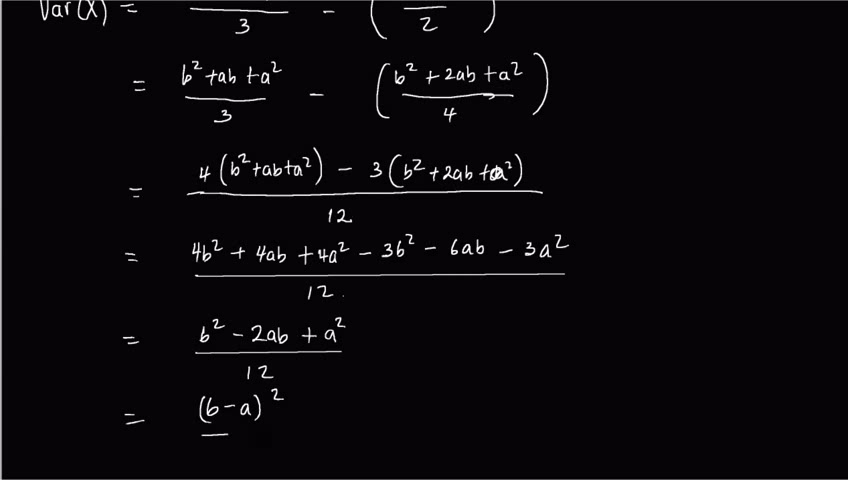 Var(X) =
3 - ( 2 )
= b² + ab + a² / 3 - ( b² + 2ab + a² / 4 )
= 4(b² + ab + a²) - 3(b² + 2ab + a²) / 12
= 4b² + 4ab + 4a² - 3b² - 6ab - 3a² / 12.
= b² - 2ab + a² / 12
= (b - a)²